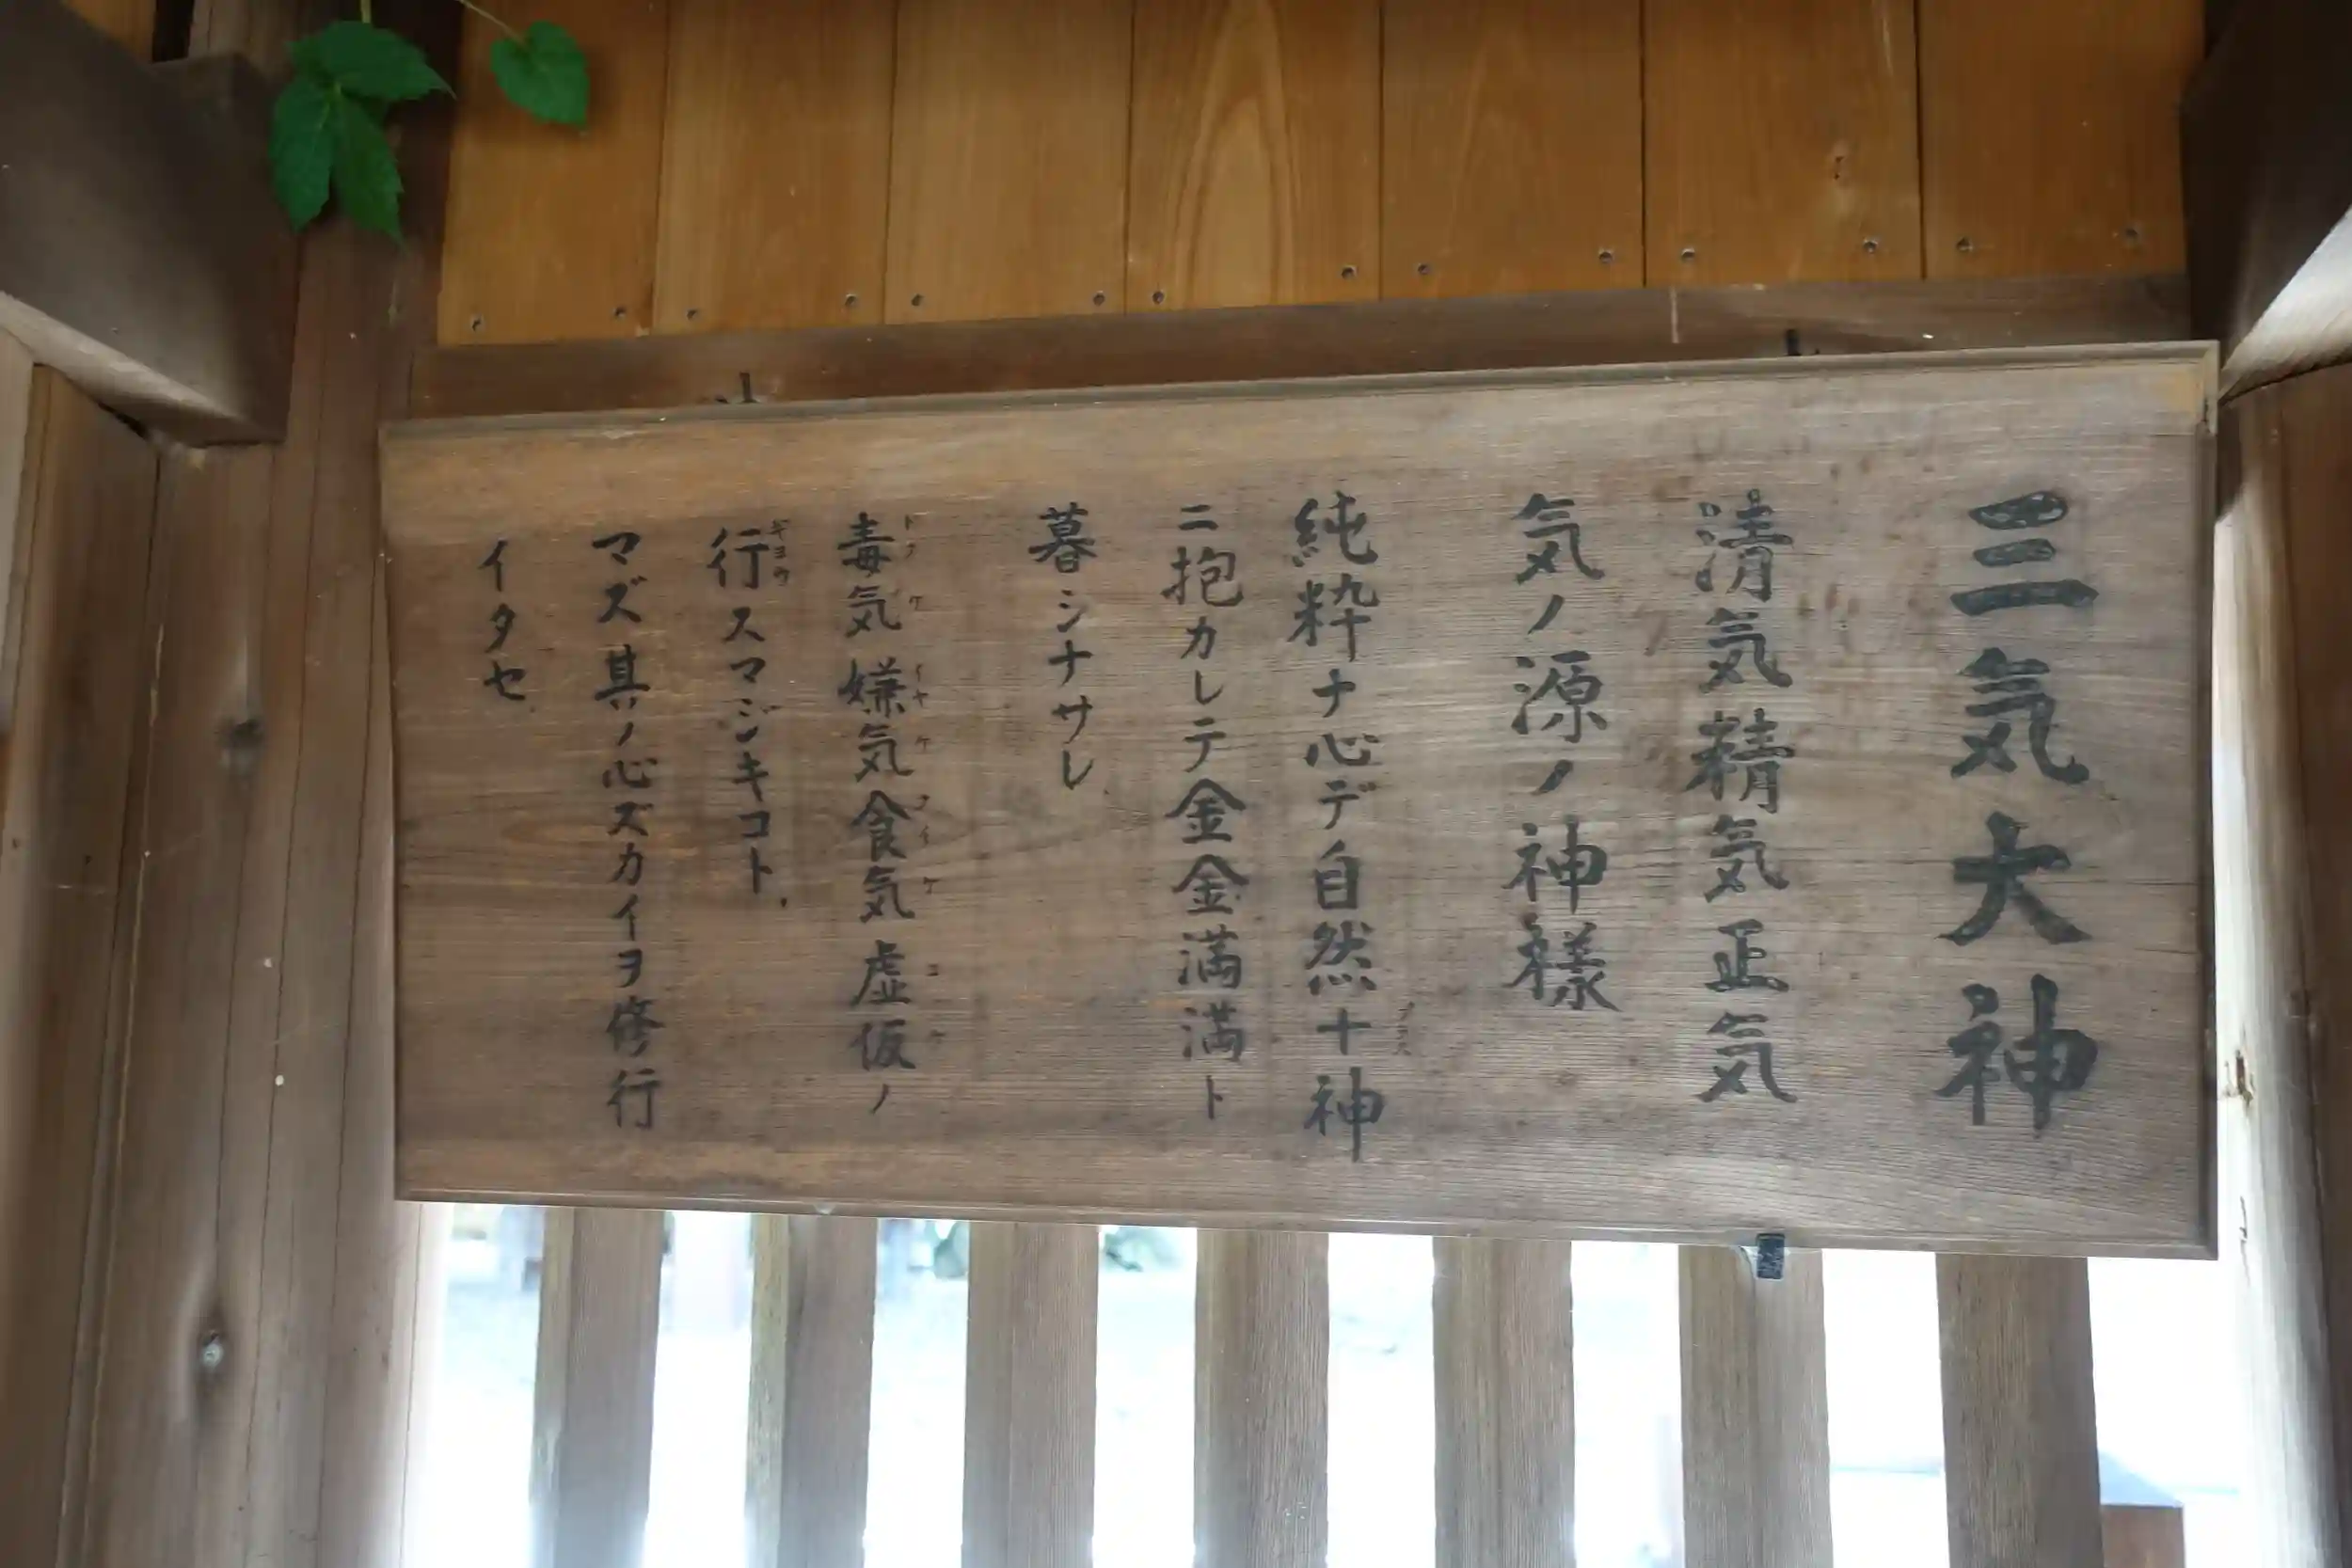 三気大神
清気精気正気
気ノ源ノ神様
純粋ナ心デ自然十神
ニ抱カレテ金金満満ト
暮シナサレ
毒気嫌気食気虚仮ノ
行スマジキコト
マズ其ノ心ズカイヲ修行
イタセ